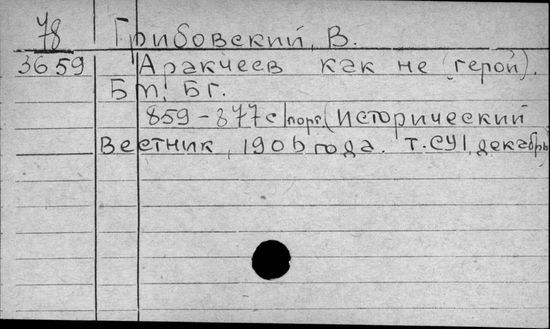 78 Грибовский, В.
3659 Аракчеев как не (герой).
Б м, Б г.
859-877 с порт. (Исторический
Вестник, 1906 года. т. CVI, декабрь